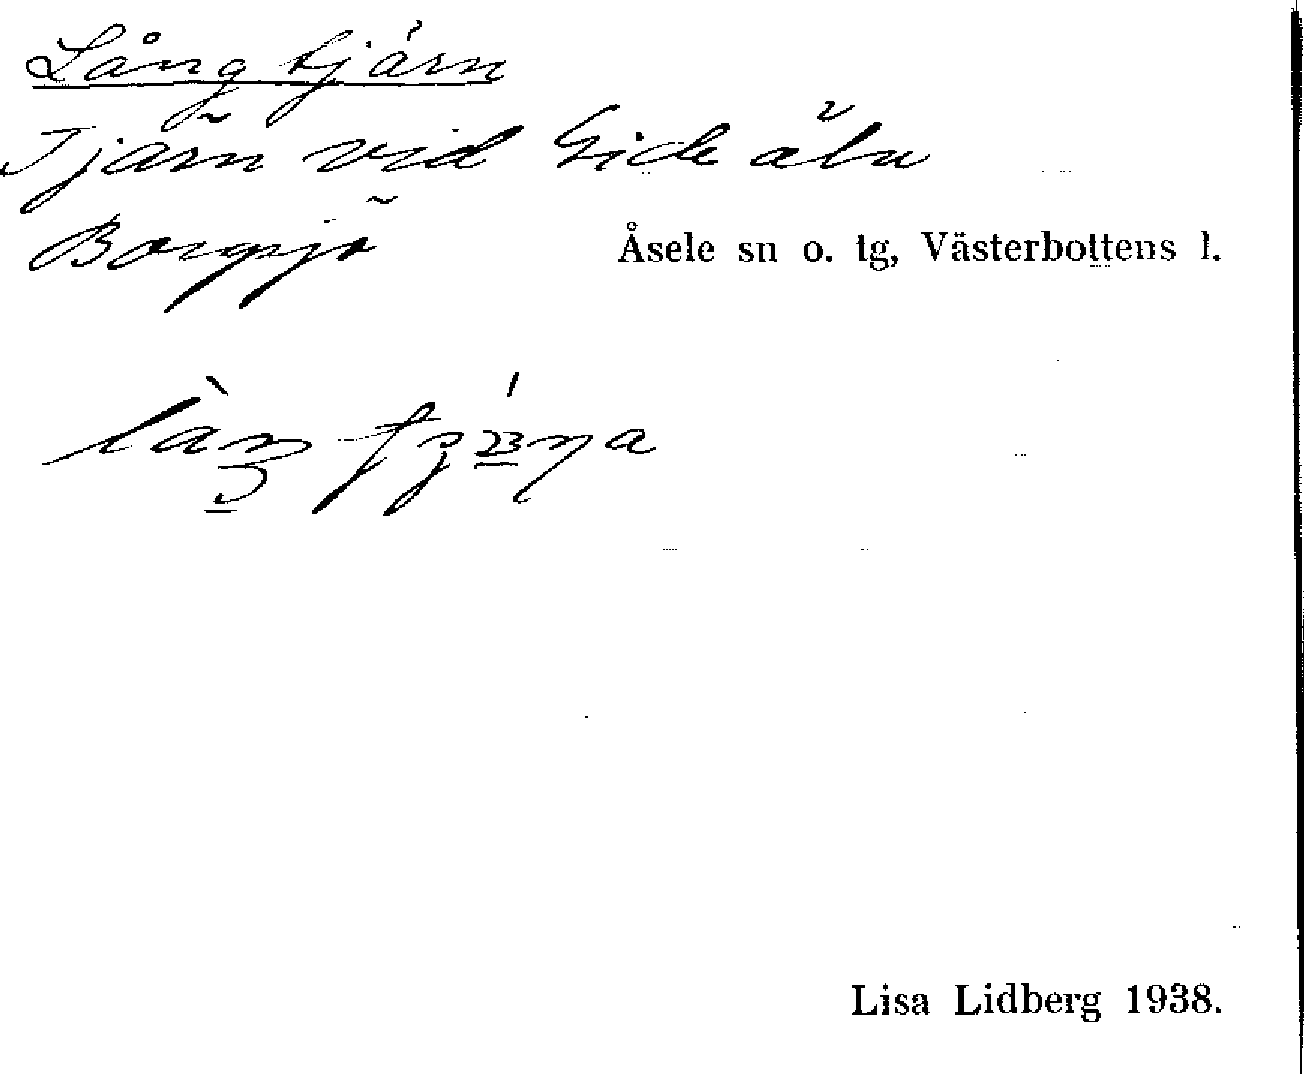 Långtjärn
Tjärn vid Gideälv
Borgsjö Åsele sn o. tg, Västerbottens l.
Lisa Lidberg 1938.